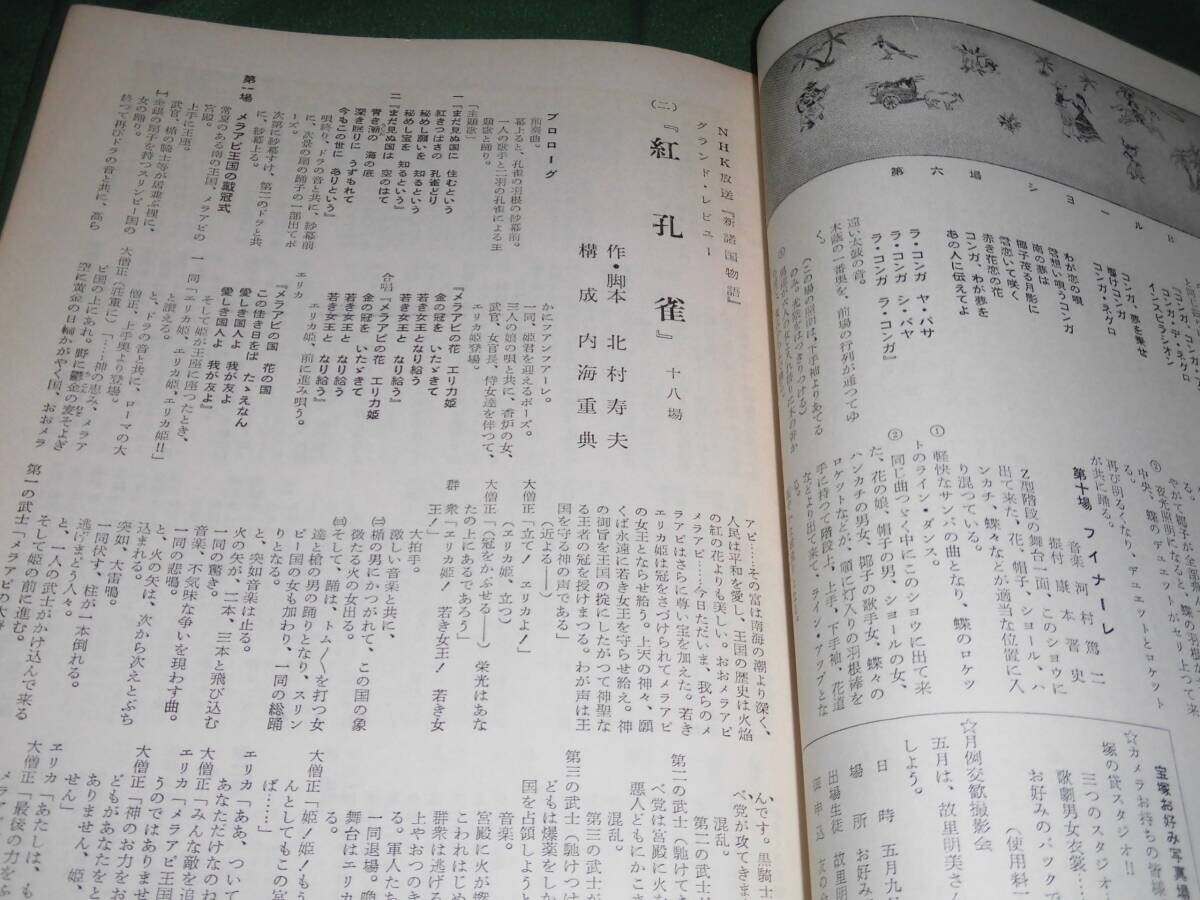 第六場 ショール B
コンガ、夢を乗せ
響けコンガ・ネグロ
わが恋の唄
君想い唄うコンガ
南の夢は
椰子茂る月影に
君恋いて咲く
赤き花恋の花
コンガ、わが夢を
あの人に伝えてよ
ラ・コンガ ヤ・バサ
ラ・コンガ シ・バヤ
ラ・コンガ ラ・コンガ』
遠い太鼓の音。
木蔭の一番奥を、前場の行列が通つてゆ
く。
③
夜光照明の
中央、蝶のデュエットとロケット
る。
やがて椰子が全部
再び明るくなり、デュエットがせり上つて来
が共に踊る。
第十場 フィナーレ
音楽 河村篤二
振付 康本晋史
Z型階段の舞台一面、このショウに
出て来た、花、帽子、ショール、ハ
ンカチ、蝶々などが適当な位置に入
り混つている。
①
軽快なサンバの曲となり、蝶のロケッ
トのライン・ダンス。
②
同じ曲つゞく中にこのショウに出て来
た、花の娘、帽子の男、ショールの女、
ハンカチの男女、椰子の歌手女、蝶々の
ロケットなどが、頭に灯入りの羽根棒を
手に持つて階段上、上手、下手袖、花道
などより出て来て、ライン・アップとな
る。
宝塚お好み写真場
☆カメラお持ちの皆様
塚の貸スタジオ!!
三つのスタジオ
歌劇男女衣裳…
お好みのバックで
（使用料
☆月例交歓撮影会
五月は、故里明美さん
しよう。
日時 五月九
場所 お好み
出場生徒 故里明
NHK放送『新諸国物語』
グランド・レビュー
(二)『紅孔雀』 十八場
作・脚本 北村寿夫
構成 内海重典
プロローグ
前奏曲。
幕上ると、孔雀の羽根の紗幕前。
一人の歌手と二羽の孔雀による主
題歌と踊り。
「主題歌」
一『まだ見ぬ国に 住むという
紅きつばさの 孔雀どり
秘めし願いを 知るという
秘めし宝を 知るという』
二『まだ見ぬ国は 空のはて
青き潮の 海の底
深き眠りに うずもれて
今もこの世に ありという』
唄終り、ドラの音と共に、紗幕前
に、次景の扇の踊子の一部出てポ
ーズ。
次第に紗幕すけ、第二のドラと共
に、紗幕上る。
第一場 メラアピ王国の戴冠式
常夏のある南の王国、メラアピの
宮殿。
上手に王座。
武官、楯の騎士等が居並ぶ裡に、
㈠金銀の扇子を持つスリンピー国の
女の踊り。
終つて再びドラの音と共に、高ら
かにファンファーレ。
一同、姫君を迎えるポーズ。
三人の娘の唄と共に、香炉の女、
武官、女官長、侍女達を伴つて、
エリカ姫登場。
『メラアピの花 エリカ姫
金の冠を いたゞきて
若き女王と なり給う
若き女王と なり給う
合唱『メラアピの花 エリカ姫
金の冠を いたゞきて
若き女王と なり給う
若き女王と なり給う
エリカ姫、前に進み唄う。
エリカ
『メラアピの国 花の国
この佳き日をば たゝえなん
愛しき国人よ 我が友よ
愛しき国人よ 我が友よ』
そして姫が王座に座つたとき、
一同「エリカ姫、エリカ姫!!」
と讃える。
と、ドラの音と共に、ローマの大
僧正、上手奥より登場。
大僧正（荘重に）「……神の恵み、メラア
ピ国の上にあれ。野に鬱金の麦そよぎ
空に黄金の日輪かがやく国、おおメラ
アピ……その富は南海の潮より深く、
人民は平和を愛し、王国の歴史は火焔
の紅の花よりも美しい。おおメラアピ
メラアピ……今日ただいま、我らのメ
ラアピはさらに尊い宝を加えた。若き
エリカ姫は冠をさづけられてメラアピ
の女王とならせ給う。上天の神々、願
くば永遠に若き女王を守らせ給え。神
の御旨を王国の掟にしたがつて神聖な
る王者の冠を授けまつる。わが声は王
国を守る神の声である」
（近よる――）
大僧正「立て！ エリカよ！」
（エリカ姫、立つ）
大僧正「（冠をかぶせる――）栄光はあな
たの上にあるであろう」
群衆「エリカ姫！ 若き女王！ 若き女
王！」
大拍手。
激しい音楽と共に、
㈡楯の男にかつがれて、この国の象
徴たる火の女出る。
㈢そして、踊は、トム〱を打つ女
達と槍の男の踊りとなり、スリン
ピー国の女も加わり、一同の総踊
りとなる。
と、突如音楽は止る。
火の矢が、二本、三本と飛び込む
一同の驚き。
音楽、不気味な争いを現わす曲。
一同の悲鳴。
と、火の矢は、次から次えとぶち
込まれる。
突如、大雷鳴。
一同伏す。柱が一本倒れる。
逃げまどう人々。
と、一人の武士がかけ込んで来る
そして姫の前に進む。
第一の武士「メラアピの大
んです。黒騎士
べ党が攻てきま
混乱。
第二の武士（馳けてき
べ党は宮殿に火を
悪人どもにかこま
混乱。
第三の武士が
第三の武士（馳けつけ
どもは爆薬をしか
国を占領しようと
音楽。
宮殿に火が燃
こわれはじめ
群衆は逃げる
上やおつのき
る。軍人た
一同退場。喚
舞台はエリカ
大僧正「姫！姫！もう
んとしてもこの宮
ば……」
エリカ「ああ、ついて
あなただけなのね
大僧正「みんな敵を追
エリカ「メラアピ王国
うのではありませ
大僧正「神のお力をお
どもがあなたをと
ありません、姫、
せん」
エリカ「あたしは、も
大僧正「最後の力をふ